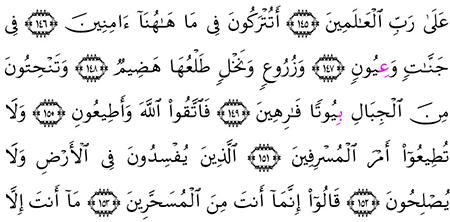 عَلَىٰ رَبِّ ٱلۡعَـٰلَمِينَ ﴿١٤٥﴾ أَتُتۡرَكُونَ فِى مَا هَـٰهُنَآ ءَامِنِينَ ﴿١٤٦﴾ فِى
جَنَّـٰتٍ وَعِيُونٍ ﴿١٤٧﴾ وَزُرُوعٍ وَنَخۡلٍ طَلۡعُهَا هَضِيمٌ ﴿١٤٨﴾ وَتَنۡحِتُونَ
مِنَ ٱلۡجِبَالِ بِيُوتًا فَـٰرِهِينَ ﴿١٤٩﴾ فَٱتَّقُواْ ٱللَّهَ وَأَطِيعُونِ ﴿١٥٠﴾ وَلَا
تُطِيعُوٓاْ أَمۡرَ ٱلۡمُسۡرِفِينَ ﴿١٥١﴾ ٱلَّذِينَ يُفۡسِدُونَ فِى ٱلۡأَرۡضِ وَلَا
يُصۡلِحُونَ ﴿١٥٢﴾ قَالُوٓاْ إِنَّمَآ أَنتَ مِنَ ٱلۡمُسَحَّرِينَ ﴿١٥٣﴾ مَآ أَنتَ إِلَّا